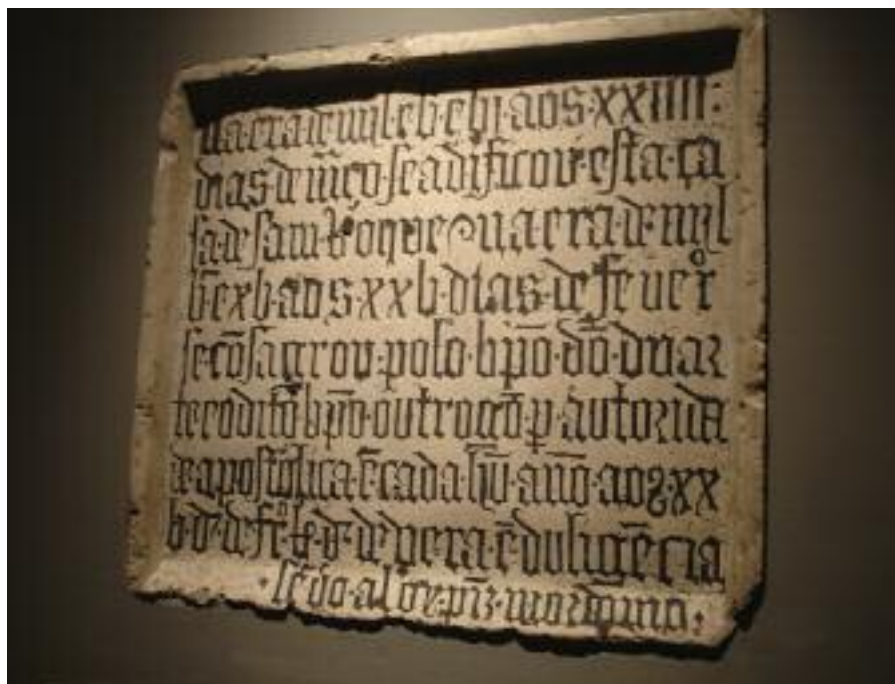 na era de myl e b e bj aos xxiiii:
dias de mço se adificou esta ca
sa de sam Roque na era de myl
b e xb aos xxb dias de fever
se cõsagrou polo bpo dõ duar
te bpo outrogõ p autorida
de apostolica ẽ cada hũ ano aos xx
b de de pera ẽ duligẽcia
sẽdo